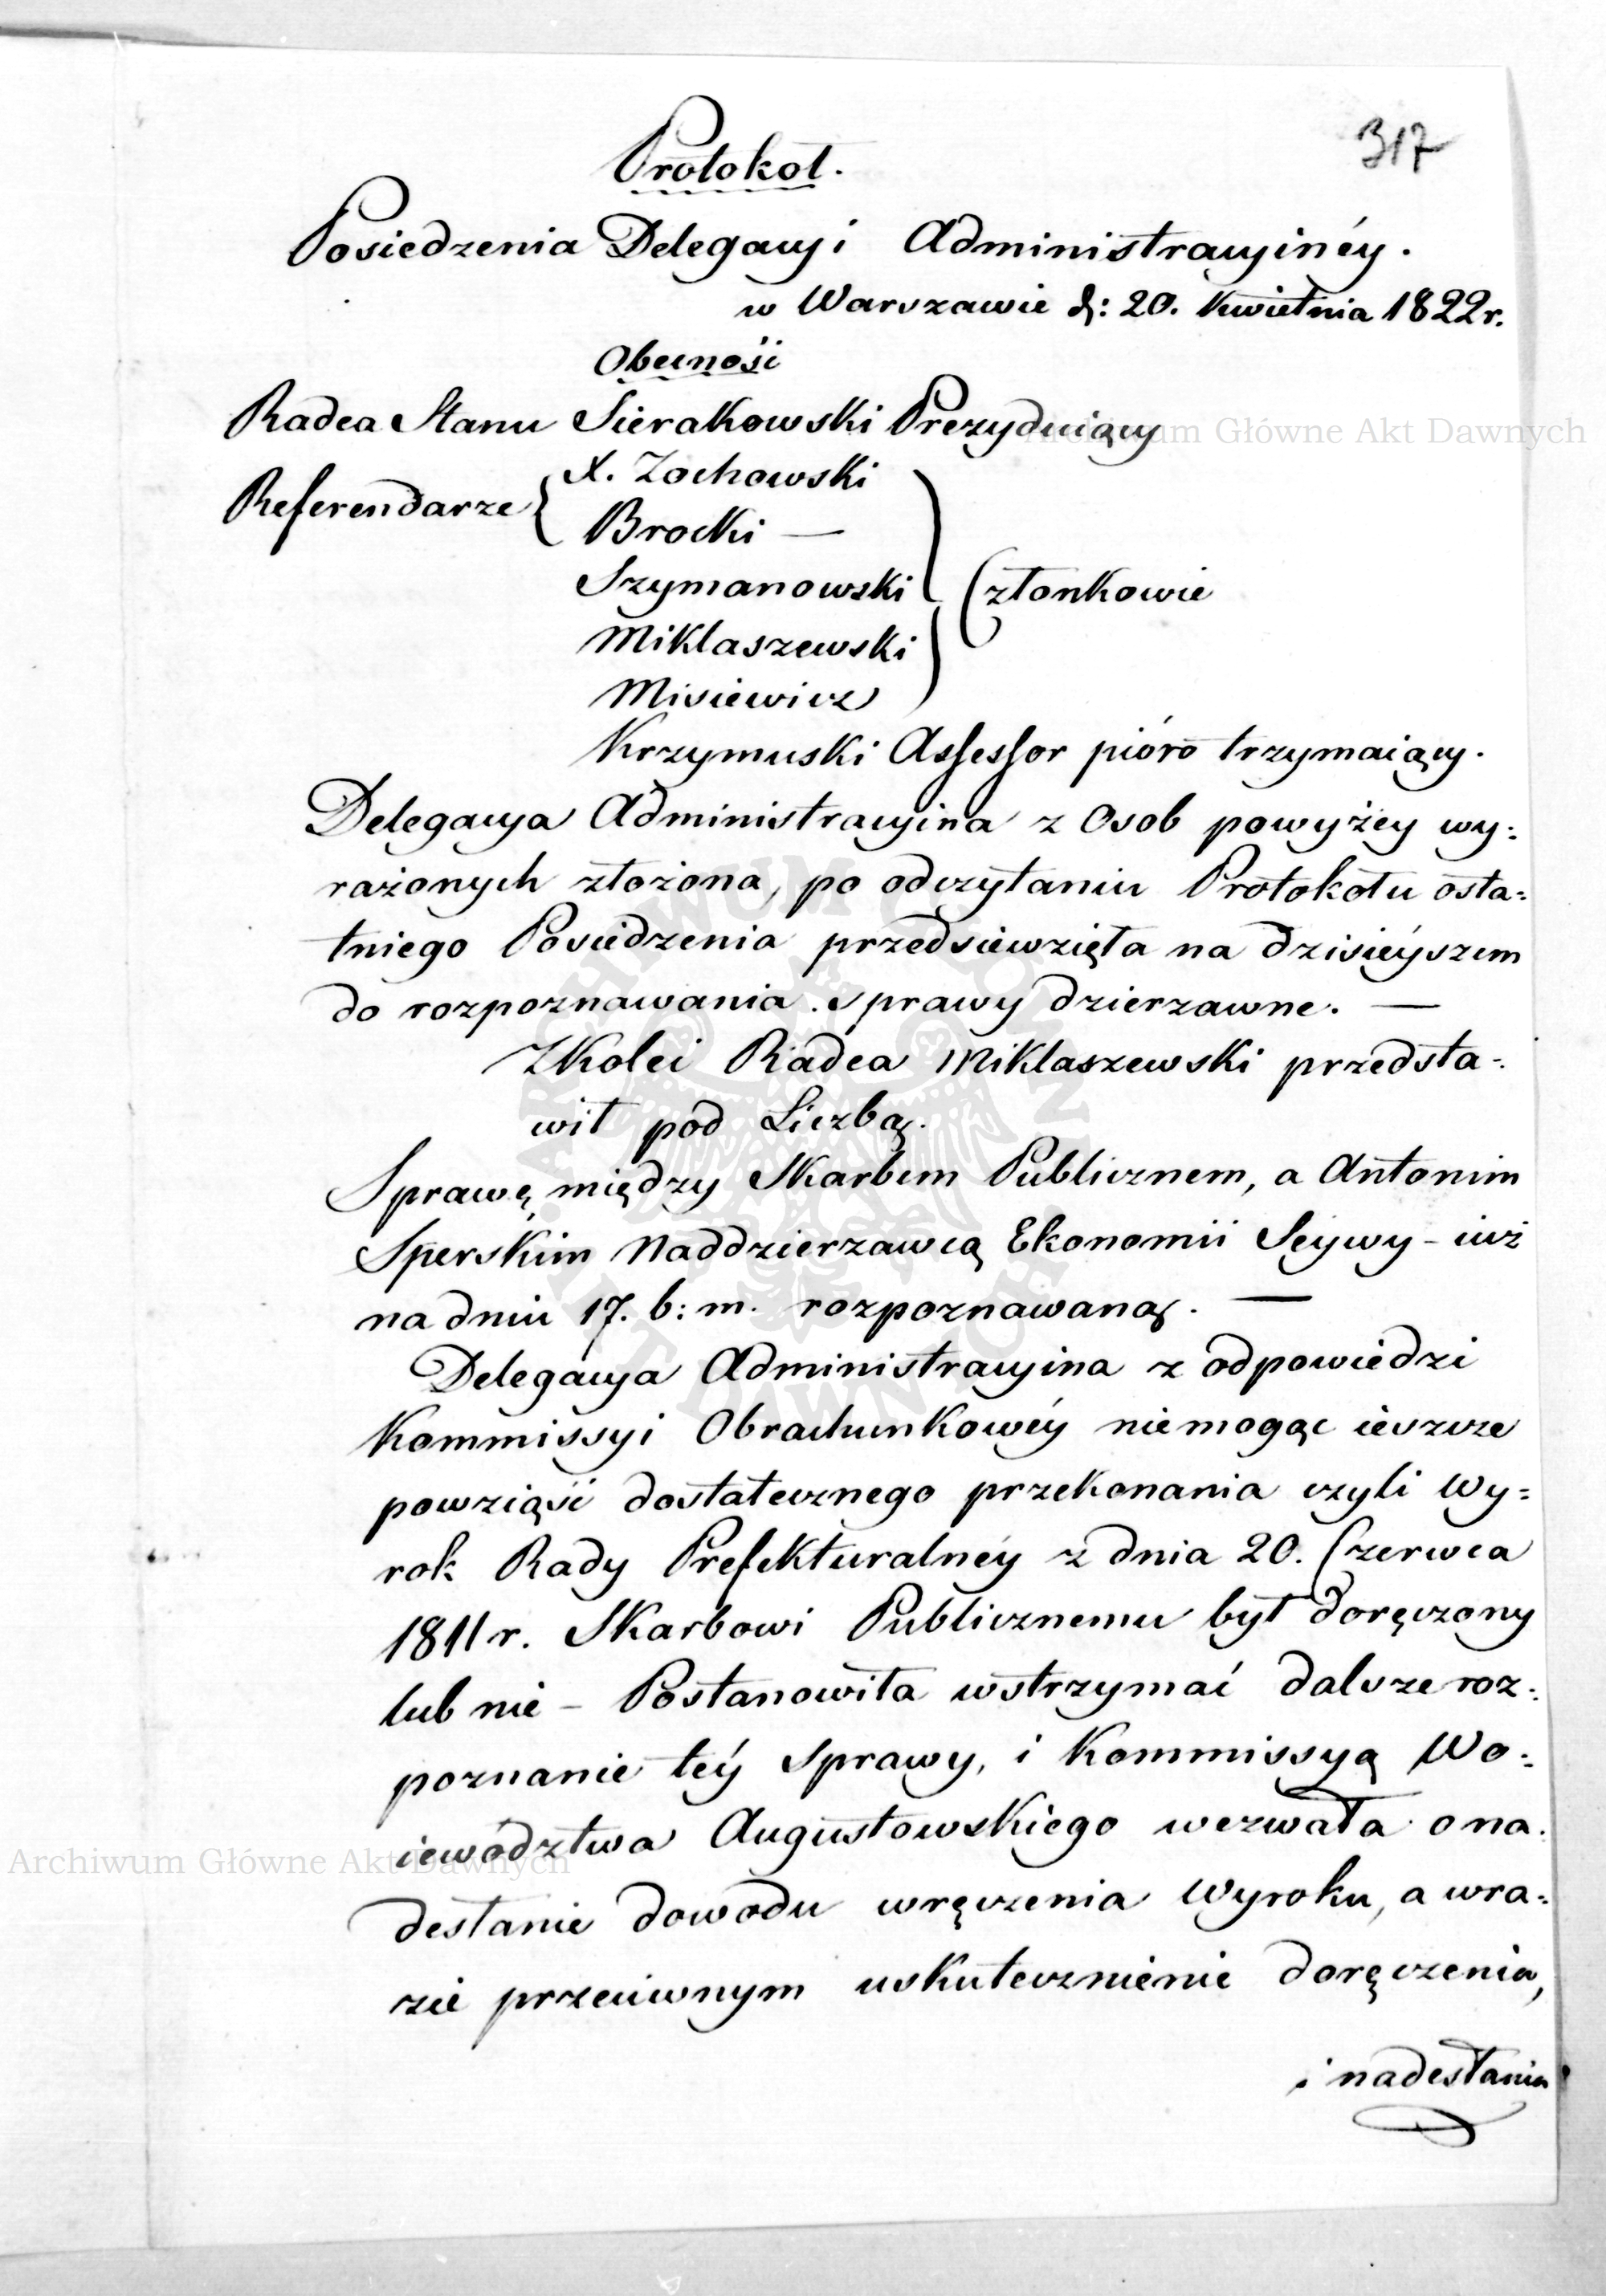 317
Protokół.
Posiedzenia Delegacyi Administracyinéy.
w Warszawie d: 20. Kwietnia 1822 r.
Obecność
Radca Stanu Sierakowski Prezyduiący
Archiwum Główne Akt Dawnych
X. Zochowski
Referendarze
Brocki —
Szymanowski
Członkowie
Miklaszewski
Misiewicz
Krzymuski Assessor pióro trzymaiący.
Delegacya Administracyina z Osob powyżey wy=
rażonych złożona, po odczytaniu Protokołu osta=
tniego Posiedzenia przedsiewzięła na dzisieyszem
do rozpoznawania sprawy dzierzawne. —
Zkolei Radca Miklaszewski przedsta=
wił pod Liczbą.
Sprawę między Skarbem Publicznem, a Antonim
Sperskim Naddzierzawcą Ekonomii Seywy – iuż
na dniu 17. b: m. rozpoznawaną. —
Delegacya Administracyina z odpowiedzi
Kommissyi Obrachunkowéy niemogąc ieszcze
powziąść dostatecznego przekonania czyli Wy=
rok Rady Prefekturalnéy z dnia 20. Czerwca
1811 r. Skarbowi Publicznemu był doręczony
lub nie – Postanowiła wstrzymać dalsze roz=
poznanie téy Sprawy, i Kommissyą Wo=
iewództwa Augustowskiego wezwała o na=
Archiwum Główne Akt Dawnych
desłanie dowodu wręczenia Wyroku, a wra=
zie przeciwnym uskutecznienie doręczenia,
i nadesłania